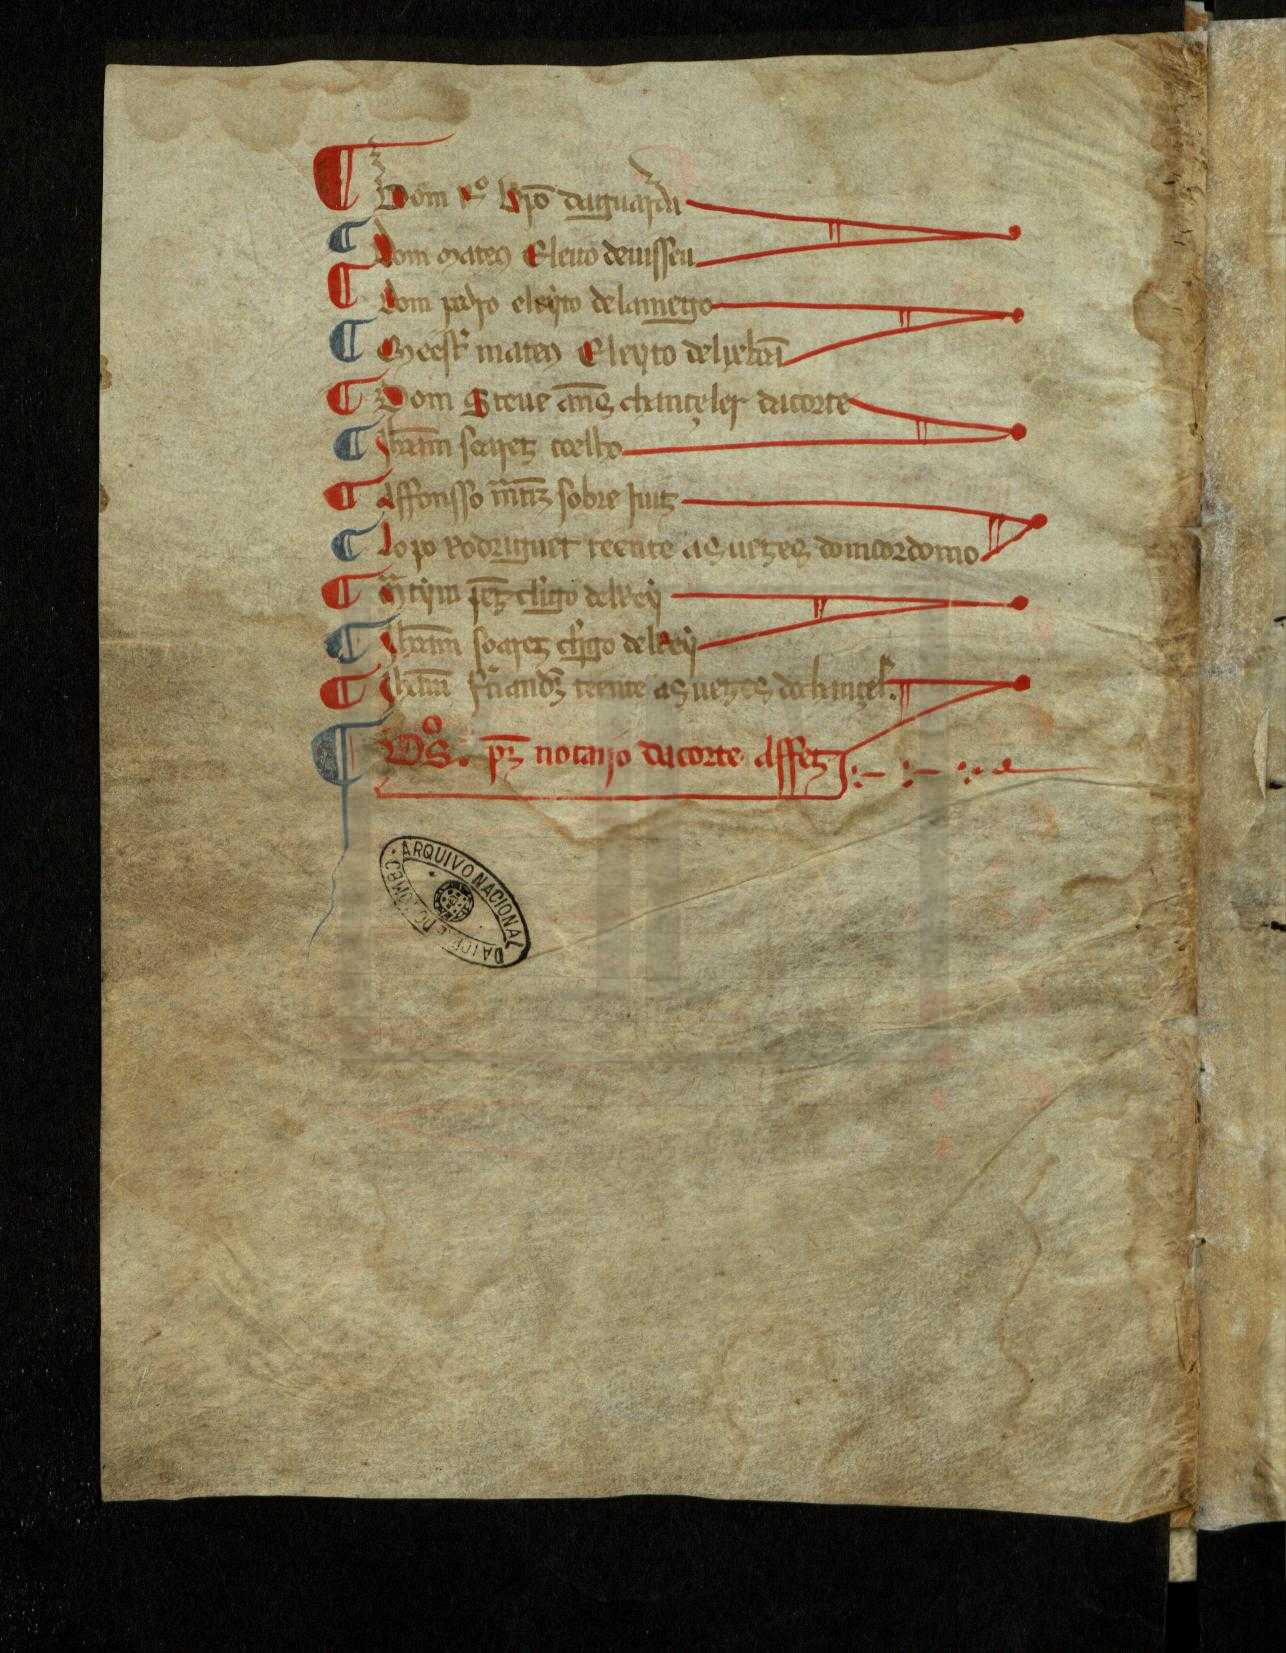 ¶ Dom Rº bp̃o daguarda
¶ Dom mateu Eleito deuisseu
¶ Dom pedro eleyto delamego
¶ Meestr̃ mateu Eleyto delixbõa
¶ Dom Steue añs chançeler dacorte
¶ Joham soarez coelho
¶ Affonsso mr̃tĩz sobre juiz
¶ Lopo Rodriguet teente as uezes domoordomo
¶ Martym pẽz clerigo delRey
¶ Joham soarez clerigo delRey
¶ Joham fr̃nandz teente as uezes dochançel̃r.
¶ Dºs. pr̃z notairo dacorte Affez
ARQUIVO NACIONAL DA TORRE DO TOMBO